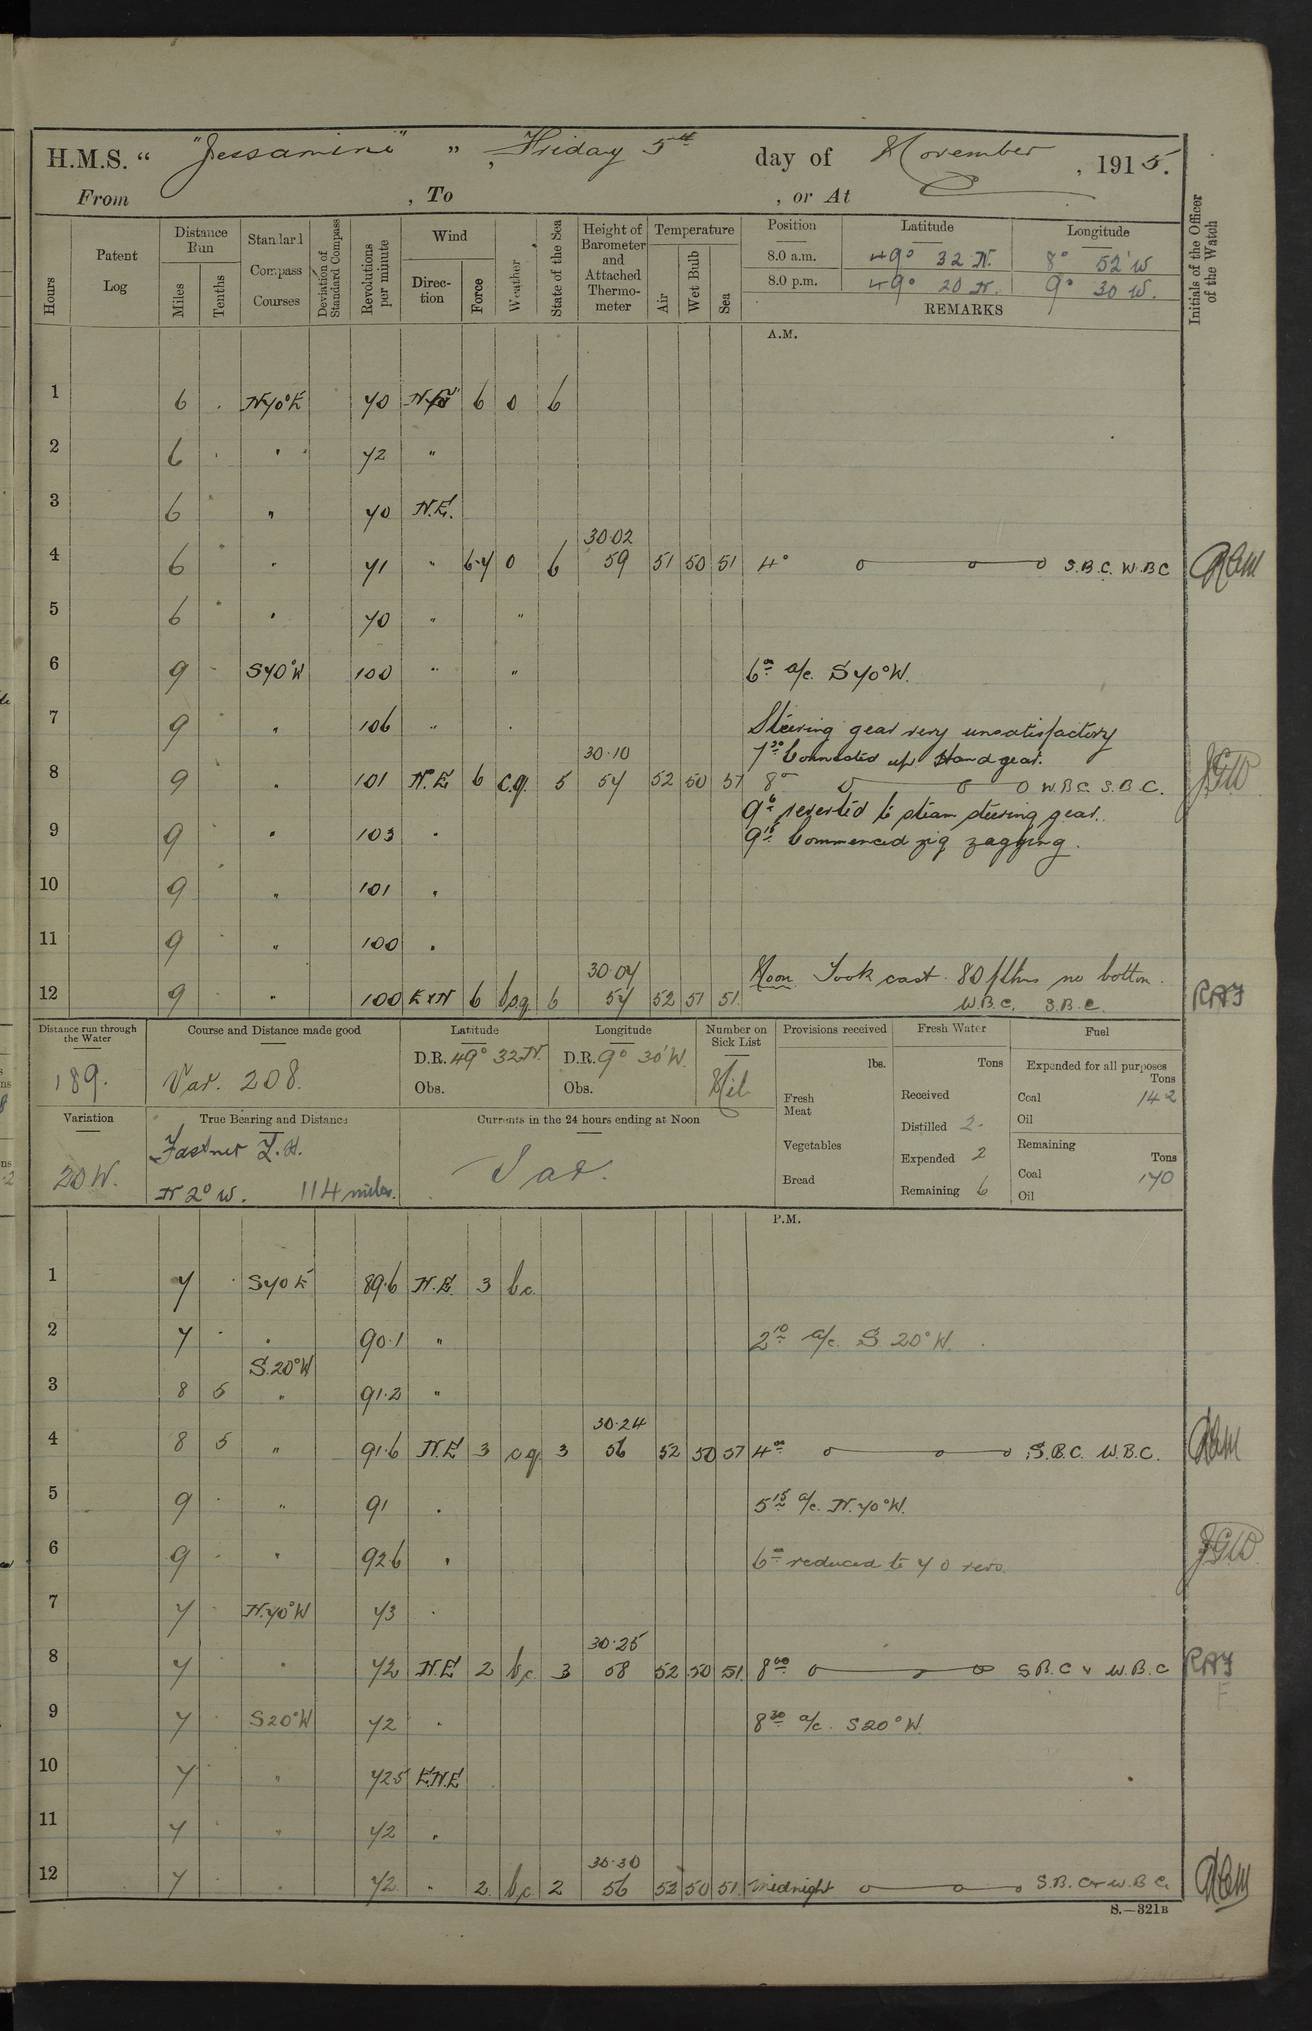 H.M.S. “ "Jessamine" ” , Friday 5th day of November , 1915.
From , To , or At
Hours
Patent Log
Distance Run
Miles
Tenths
Standard Compass Courses
Deviation of Standard Compass
Revolutions per minute
Wind
Direction
Force
Weather
State of the Sea
Height of Barometer and Attached Thermometer
Temperature
Air
Wet Bulb
Sea
Position Latitude Longitude
8.0 a.m. 49° 32 N. 8° 52' W
8.0 p.m. 49° 20 N. 9° 30 W.
REMARKS
Initials of the Officer of the Watch
A.M.
1 6 . N70°E 70 6 o 6
2 6 . " 72 "
3 6 " " 70 N.E.
30.02
4 6 " " 71 " 6-7 o 6 59 51 50 51 4° S.B.C. W.B.C
5 6 " " 70 " "
6 9 . S70°W 100 " " 6 00 a/c. S 70°W.
7 9 . " 106 " . Steering gear very unsatisfactory
7 30 Connected up Hand gear.
30.10
8 9 . " 101 N.E 6 c.q. 5 57 52 50 51 8 W.B.C. S.B.C. JGW
9 6 reverted to steam steering gear.
9 9 . " 103 " 9 15 Commenced zig zagging.
10 9 . " 101 "
11 9 . " 100 "
30.07 Noon Took cast. 80 fthms no bottom.
12 9 . " 100 E x N 6 bcq 6 57 52 51 51 W.B.C. S.B.C. RAF
Distance run through the Water
189.
Course and Distance made good
Var. 208.
Latitude
D.R. 49° 32 N.
Obs.
Longitude
D.R. 9° 30' W.
Obs.
Number on Sick List
Nil
Provisions received
lbs.
Fresh Meat
Vegetables
Bread
Fresh Water
Tons
Received
Distilled 2.
Expended 2
Remaining 6
Fuel
Expended for all purposes
Tons
Coal 142
Oil
Remaining
Tons
Coal 170
Oil
Variation
20 W.
True Bearing and Distance
Fastnet L.H.
N 2° W. 114 miles.
Currents in the 24 hours ending at Noon
Var.
P.M.
1 7 . S70 E 89.6 N.E. 3 b.c.
2 7 . " 90.1 " 2 10 a/c. S 20°W.
S.20°W
3 8 5 " 91.2 "
30.24
4 8 5 " 91.6 N.E 3 c q 3 56 52 50 51 4 00 S.B.C. W.B.C.
5 9 . " 91 . 5 15 a/c. N.70°W.
6 9 . " 92.6 . 6 00 reduced to 70 revs. JGW
7 7 . N.70°W 73 .
30.25
8 7 . " 72 N.E 2 b.c. 3 58 52 50 51. 8 00 S.B.C & W.B.C RAF
F
9 7 . S20°W 72 . 8 30 a/c. S20°W.
10 7 . " 72.5 E.N.E
11 7 . " 72 .
30.30
12 7 . . 72 . 2 b.c 2 56 52 50 51. Midnight S.B.C & W.B.C.
S.—321B